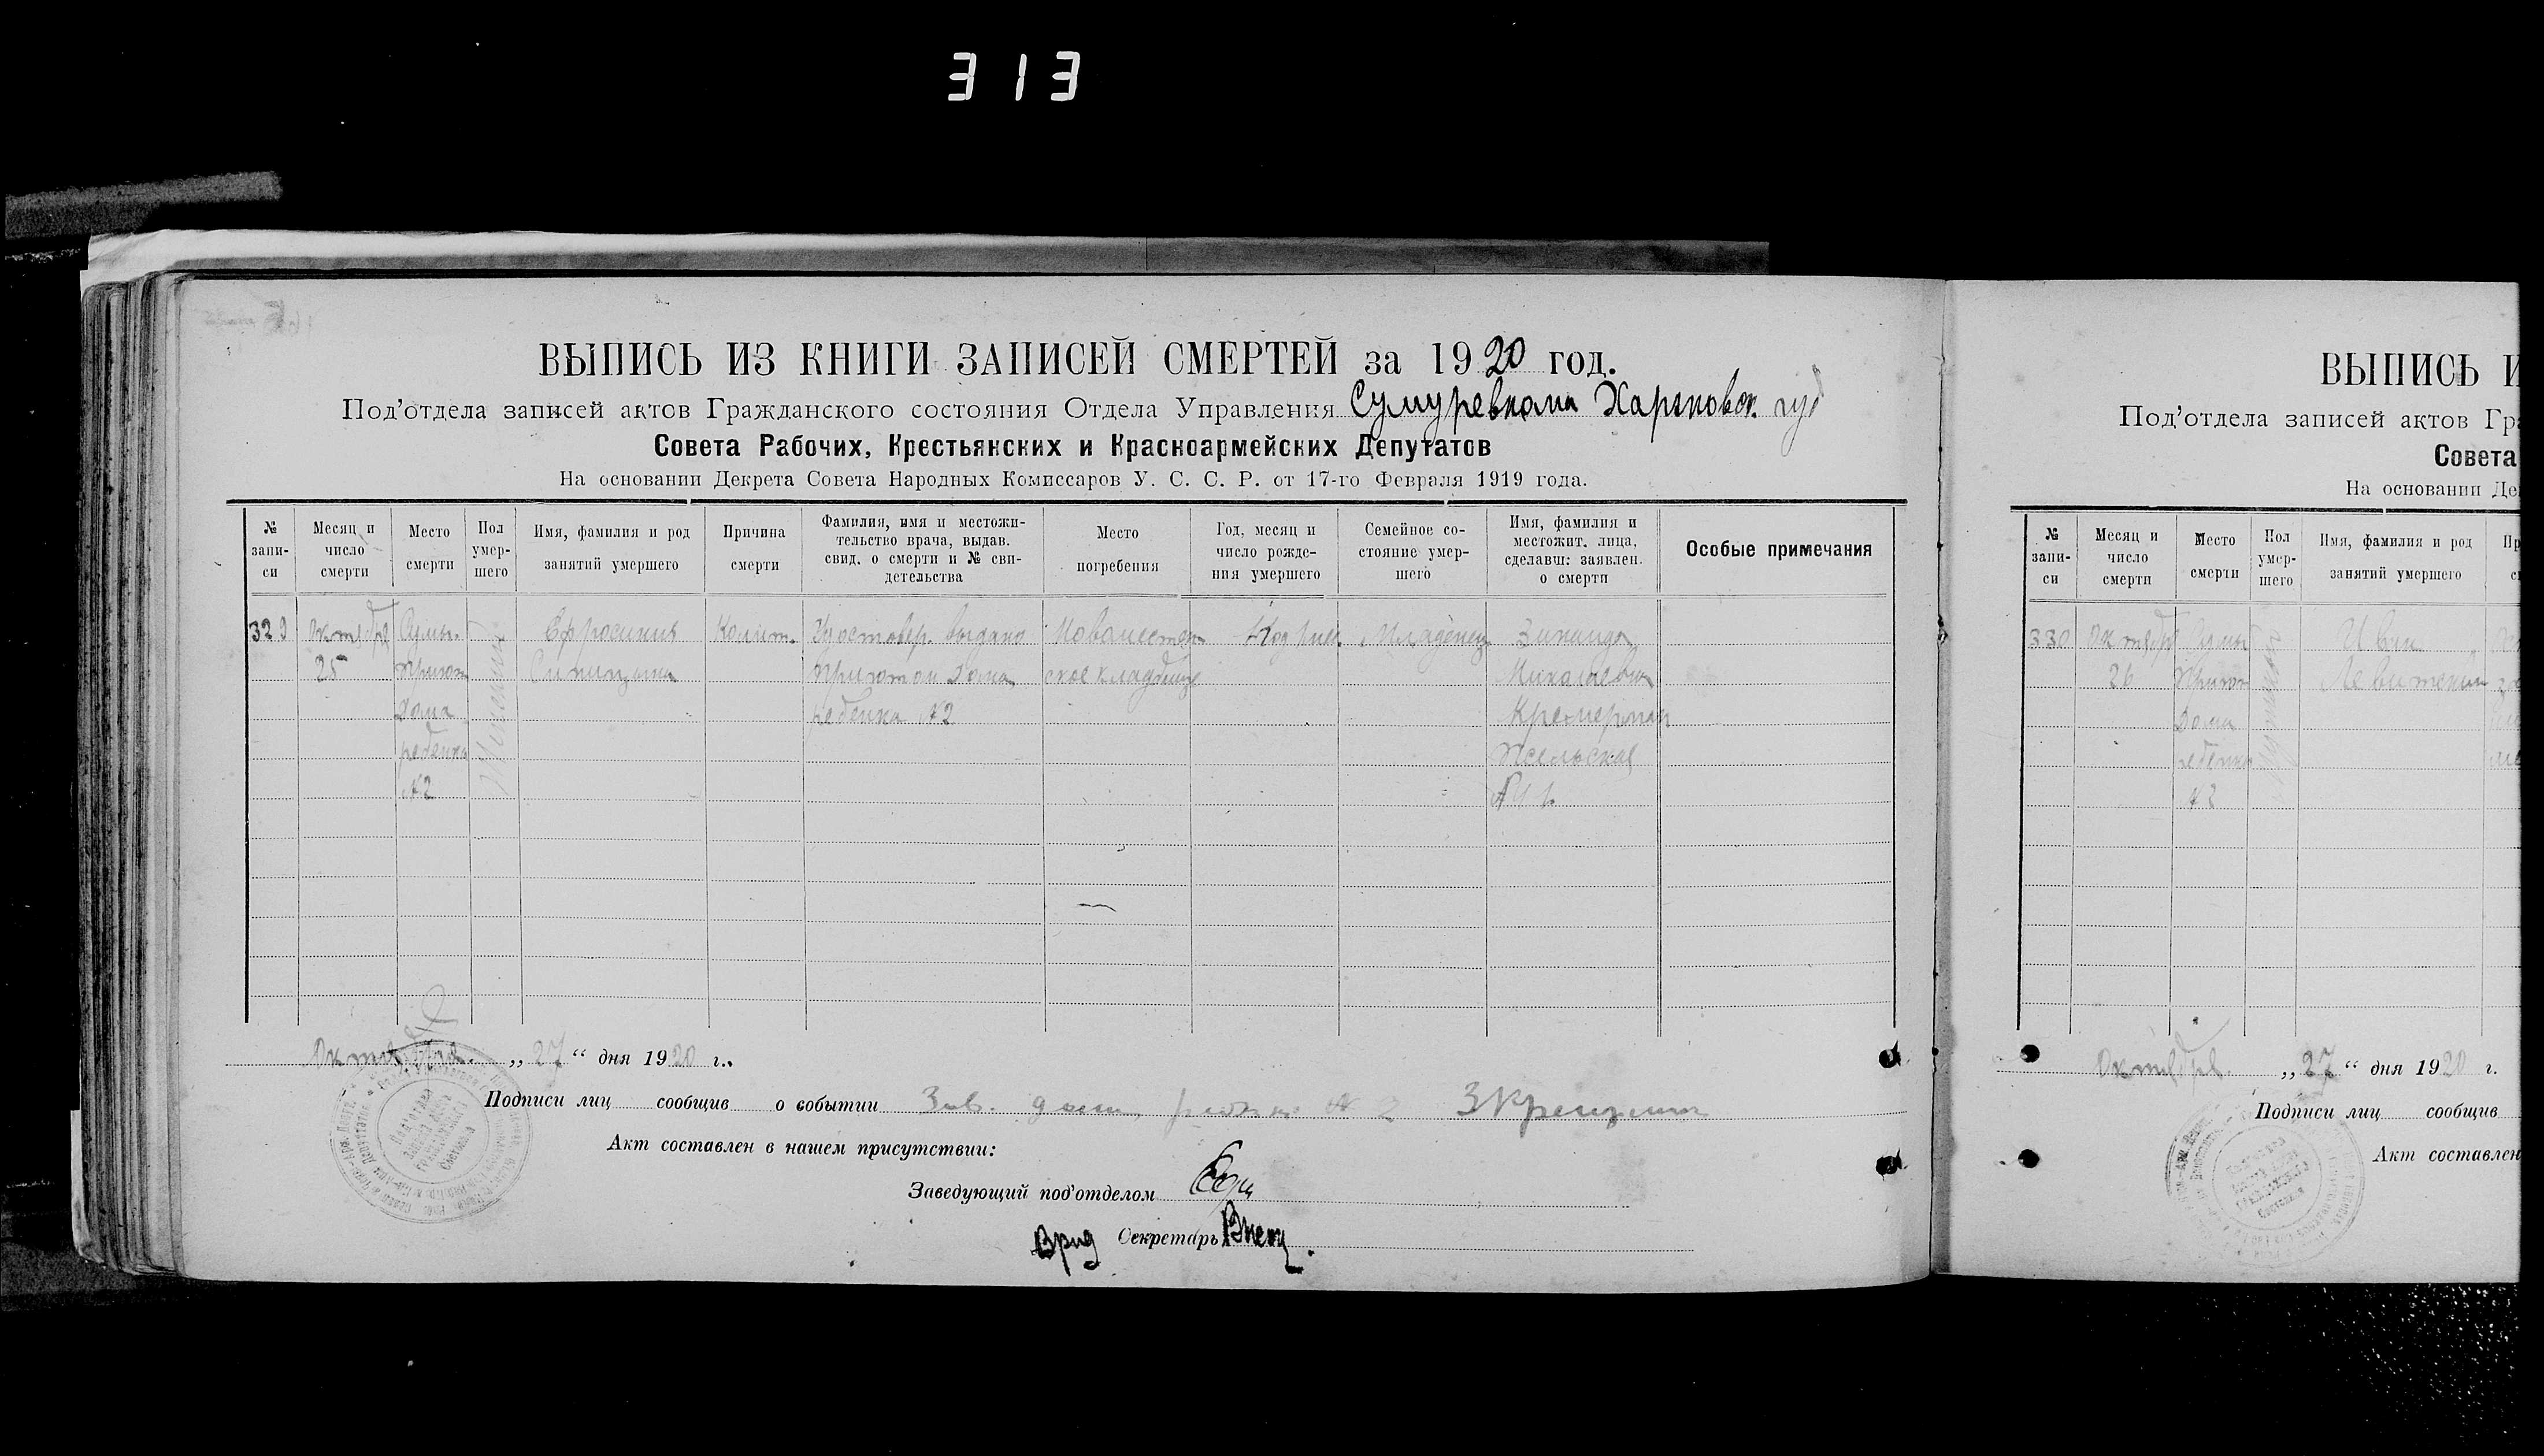 313
ВЫПИСЬ ИЗ КНИГИ ЗАПИСЕЙ СМЕРТЕЙ за 1920 год.
Под'отдела записей актов Гражданского состояния Отдела Управления Сумуревкома Харьковск. губ
Совета Рабочих, Крестьянских и Красноармейских Депутатов
На основании Декрета Совета Народных Комиссаров У. С. С. Р. от 17-го Февраля 1919 года.
№ запи-
си
Месяц и
число
смерти
Место
смерти
Пол
умер-
шего
Имя, фамилия и род
занятий умершего
Причина
смерти
Фамилия, имя и местожи-
тельство врача, выдав.
свид. о смерти и № сви-
детельства
Место
погребения
Год, месяц и
число рожде-
ния умершего
Семейное со-
стояние умер-
шего
Имя, фамилия и
местожит. лица,
сделавш: заявлен.
о смерти
Особые примечания
329
Октября
25
Сумы.
Приют
Дома
ребенка
№2
Женский
Ефросиния
Колит.
Удостовер. выдано
Приютом Дома
ребенка №2
Новоместен
ское кладбище
Младенец
Зинаида
Николаевна
Псельская
Октября „27“ дня 1920 г.
Подписи лиц сообщив о событии Зав. дома ребенка № 2
Акт составлен в нашем присутствии:
Заведующий под'отделом
Врид Секретарь
ВЫПИСЬ И
Под'отдела записей актов Гра
Совета
На основании Де
№
запи-
си
Месяц и
число
смерти
Место
смерти
Пол
умер-
шего
Имя, фамилия и род
занятий умершего
330
Октября
26
Сумы
Приют
Дома
ребенка
№2
Иван
Октября „27“ дня 1920 г.
Подписи лиц сообщив
Акт составлен